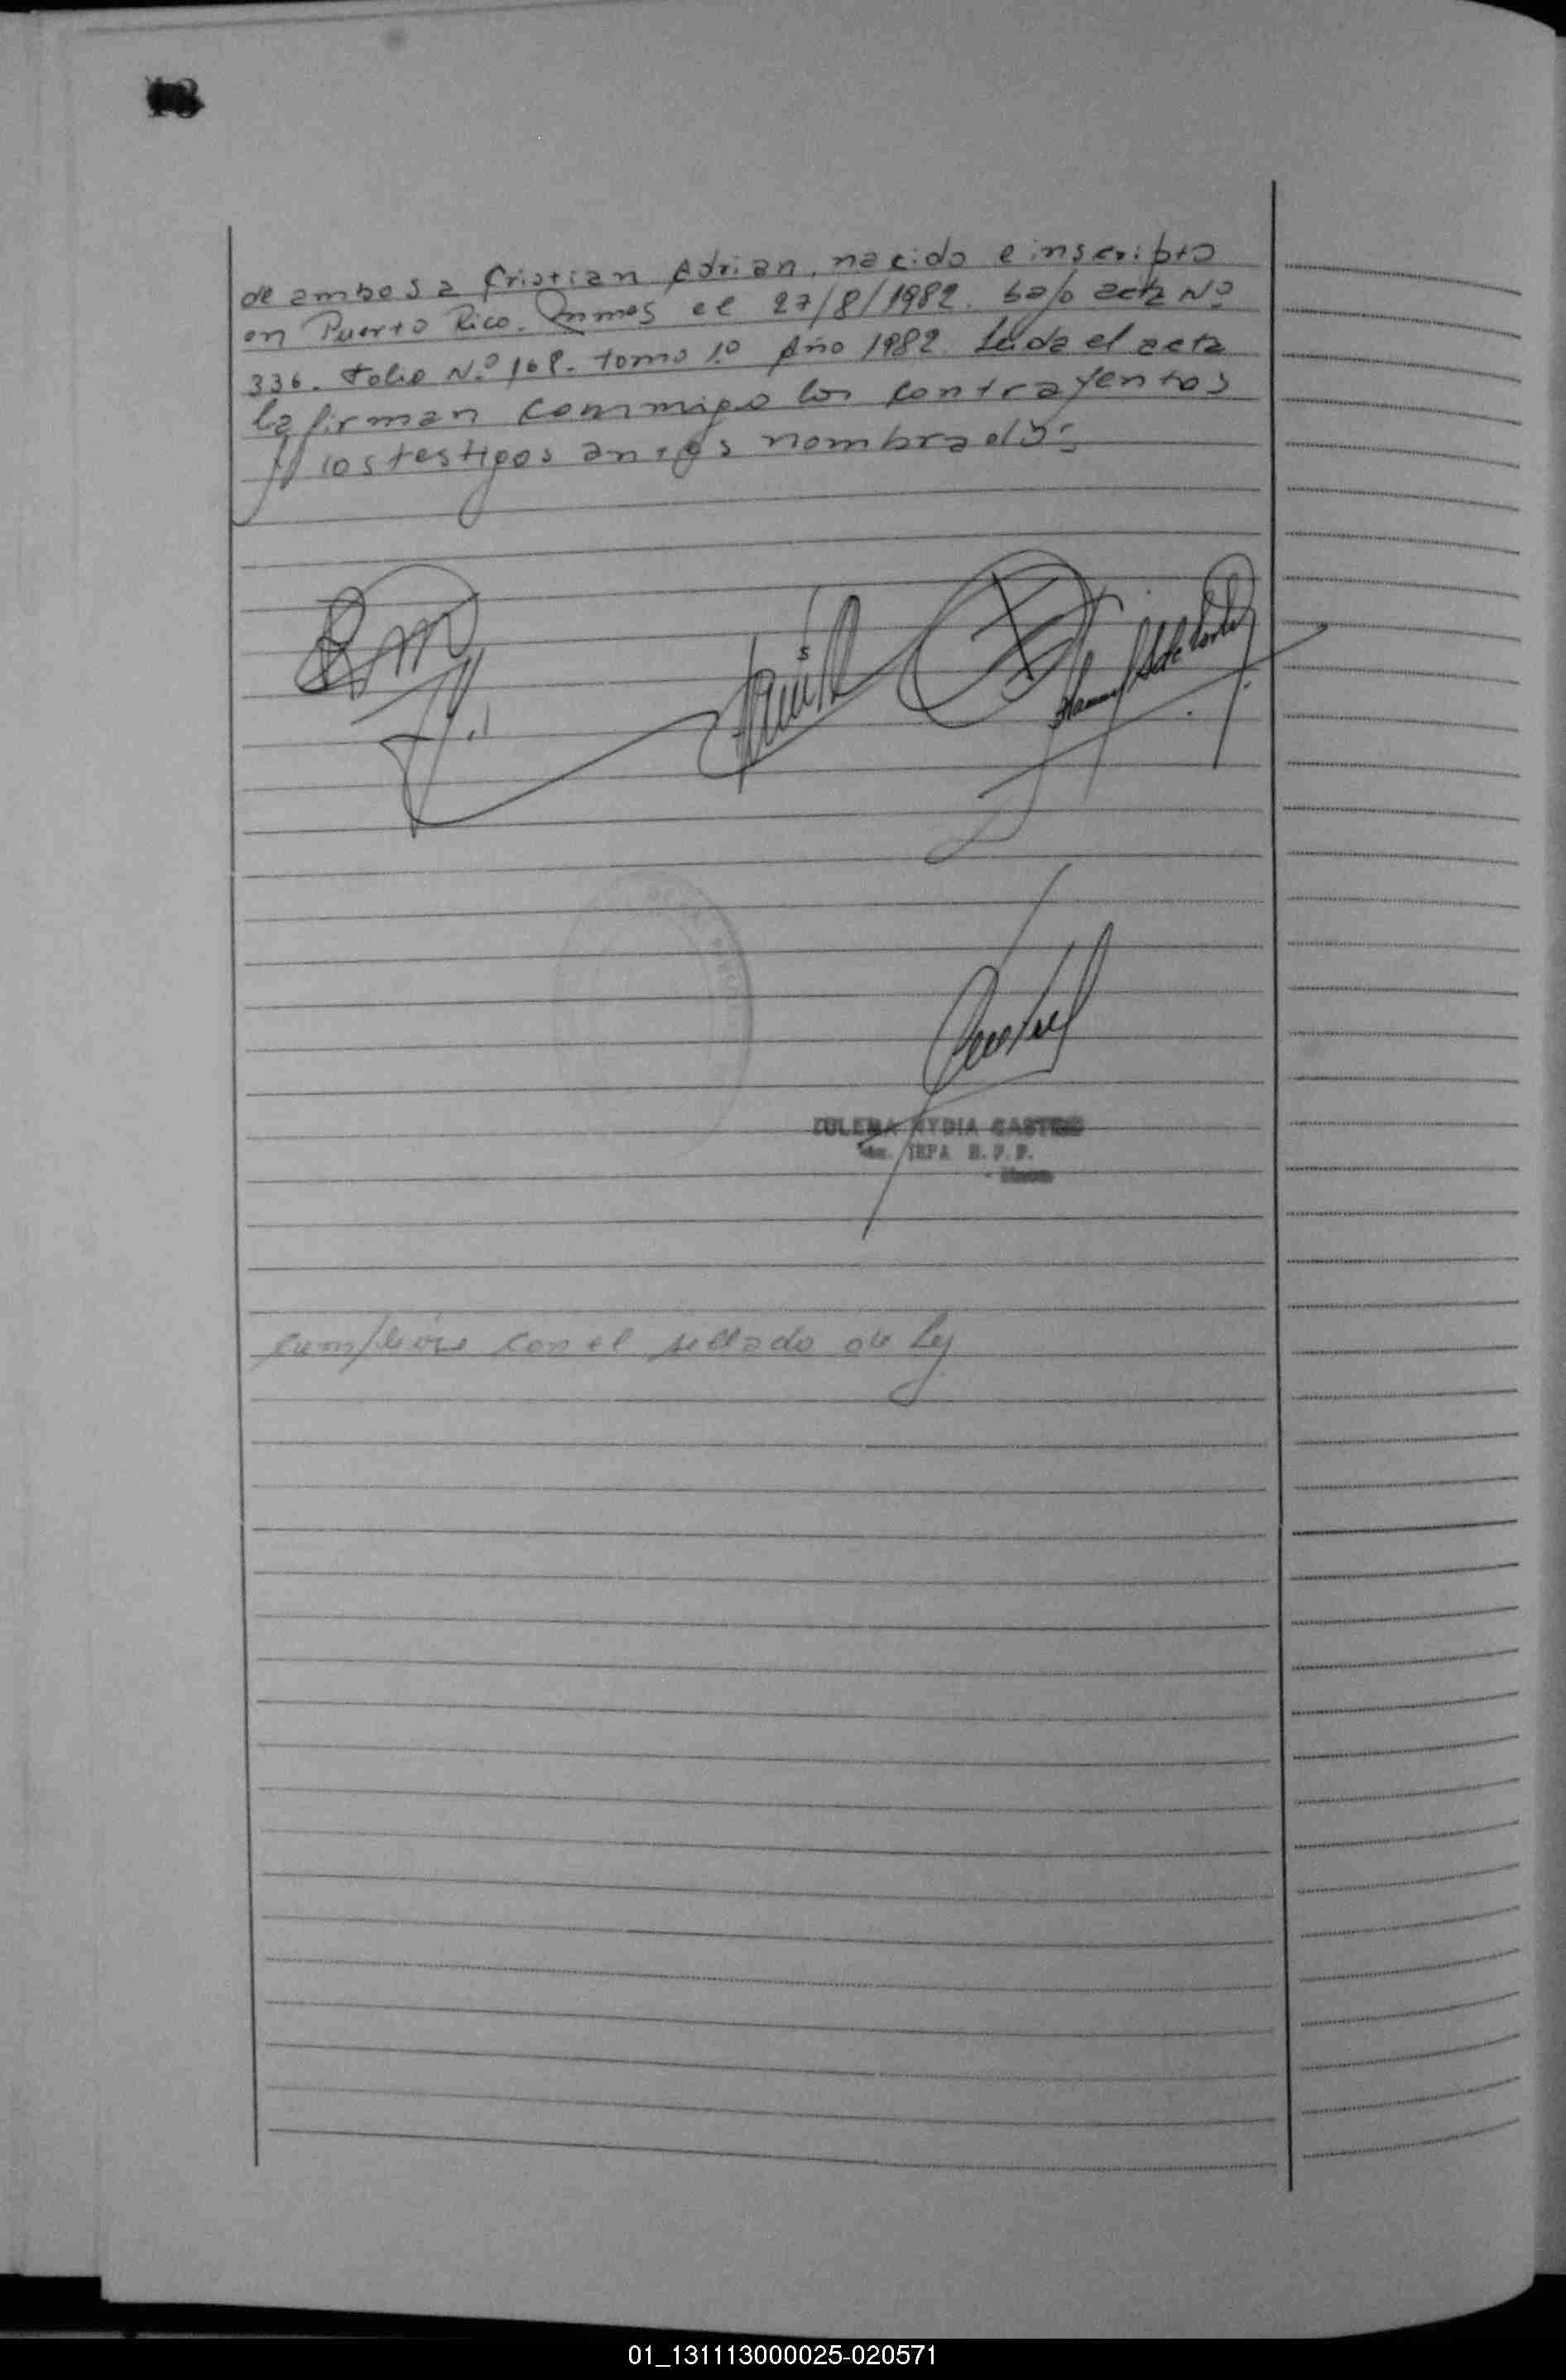 18
de ambos a Cristian Adrian, nacido e inscripto
en Puerto Rico. Mnes el 27/8/1982. bajo acta Nº
336. Folio Nº 168. tomo 1º Año 1982. Leida el acta
la firman conmigo los contrayentes
y los testigos antes nombrados
ZULEMA NYDIA CASTRO
JEFA R. P. P.
cumplióse con el sellado de Ley
01_131113000025-020571